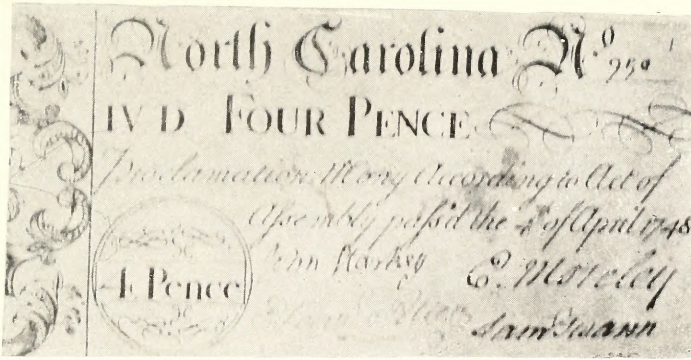 North Carolina No
IV D FOUR PENCE
Proclamation Mony According to Act of
Assembly pass'd the 4 of April 1748
John Starkey
4 Pence
E. Moseley
Sam Swann